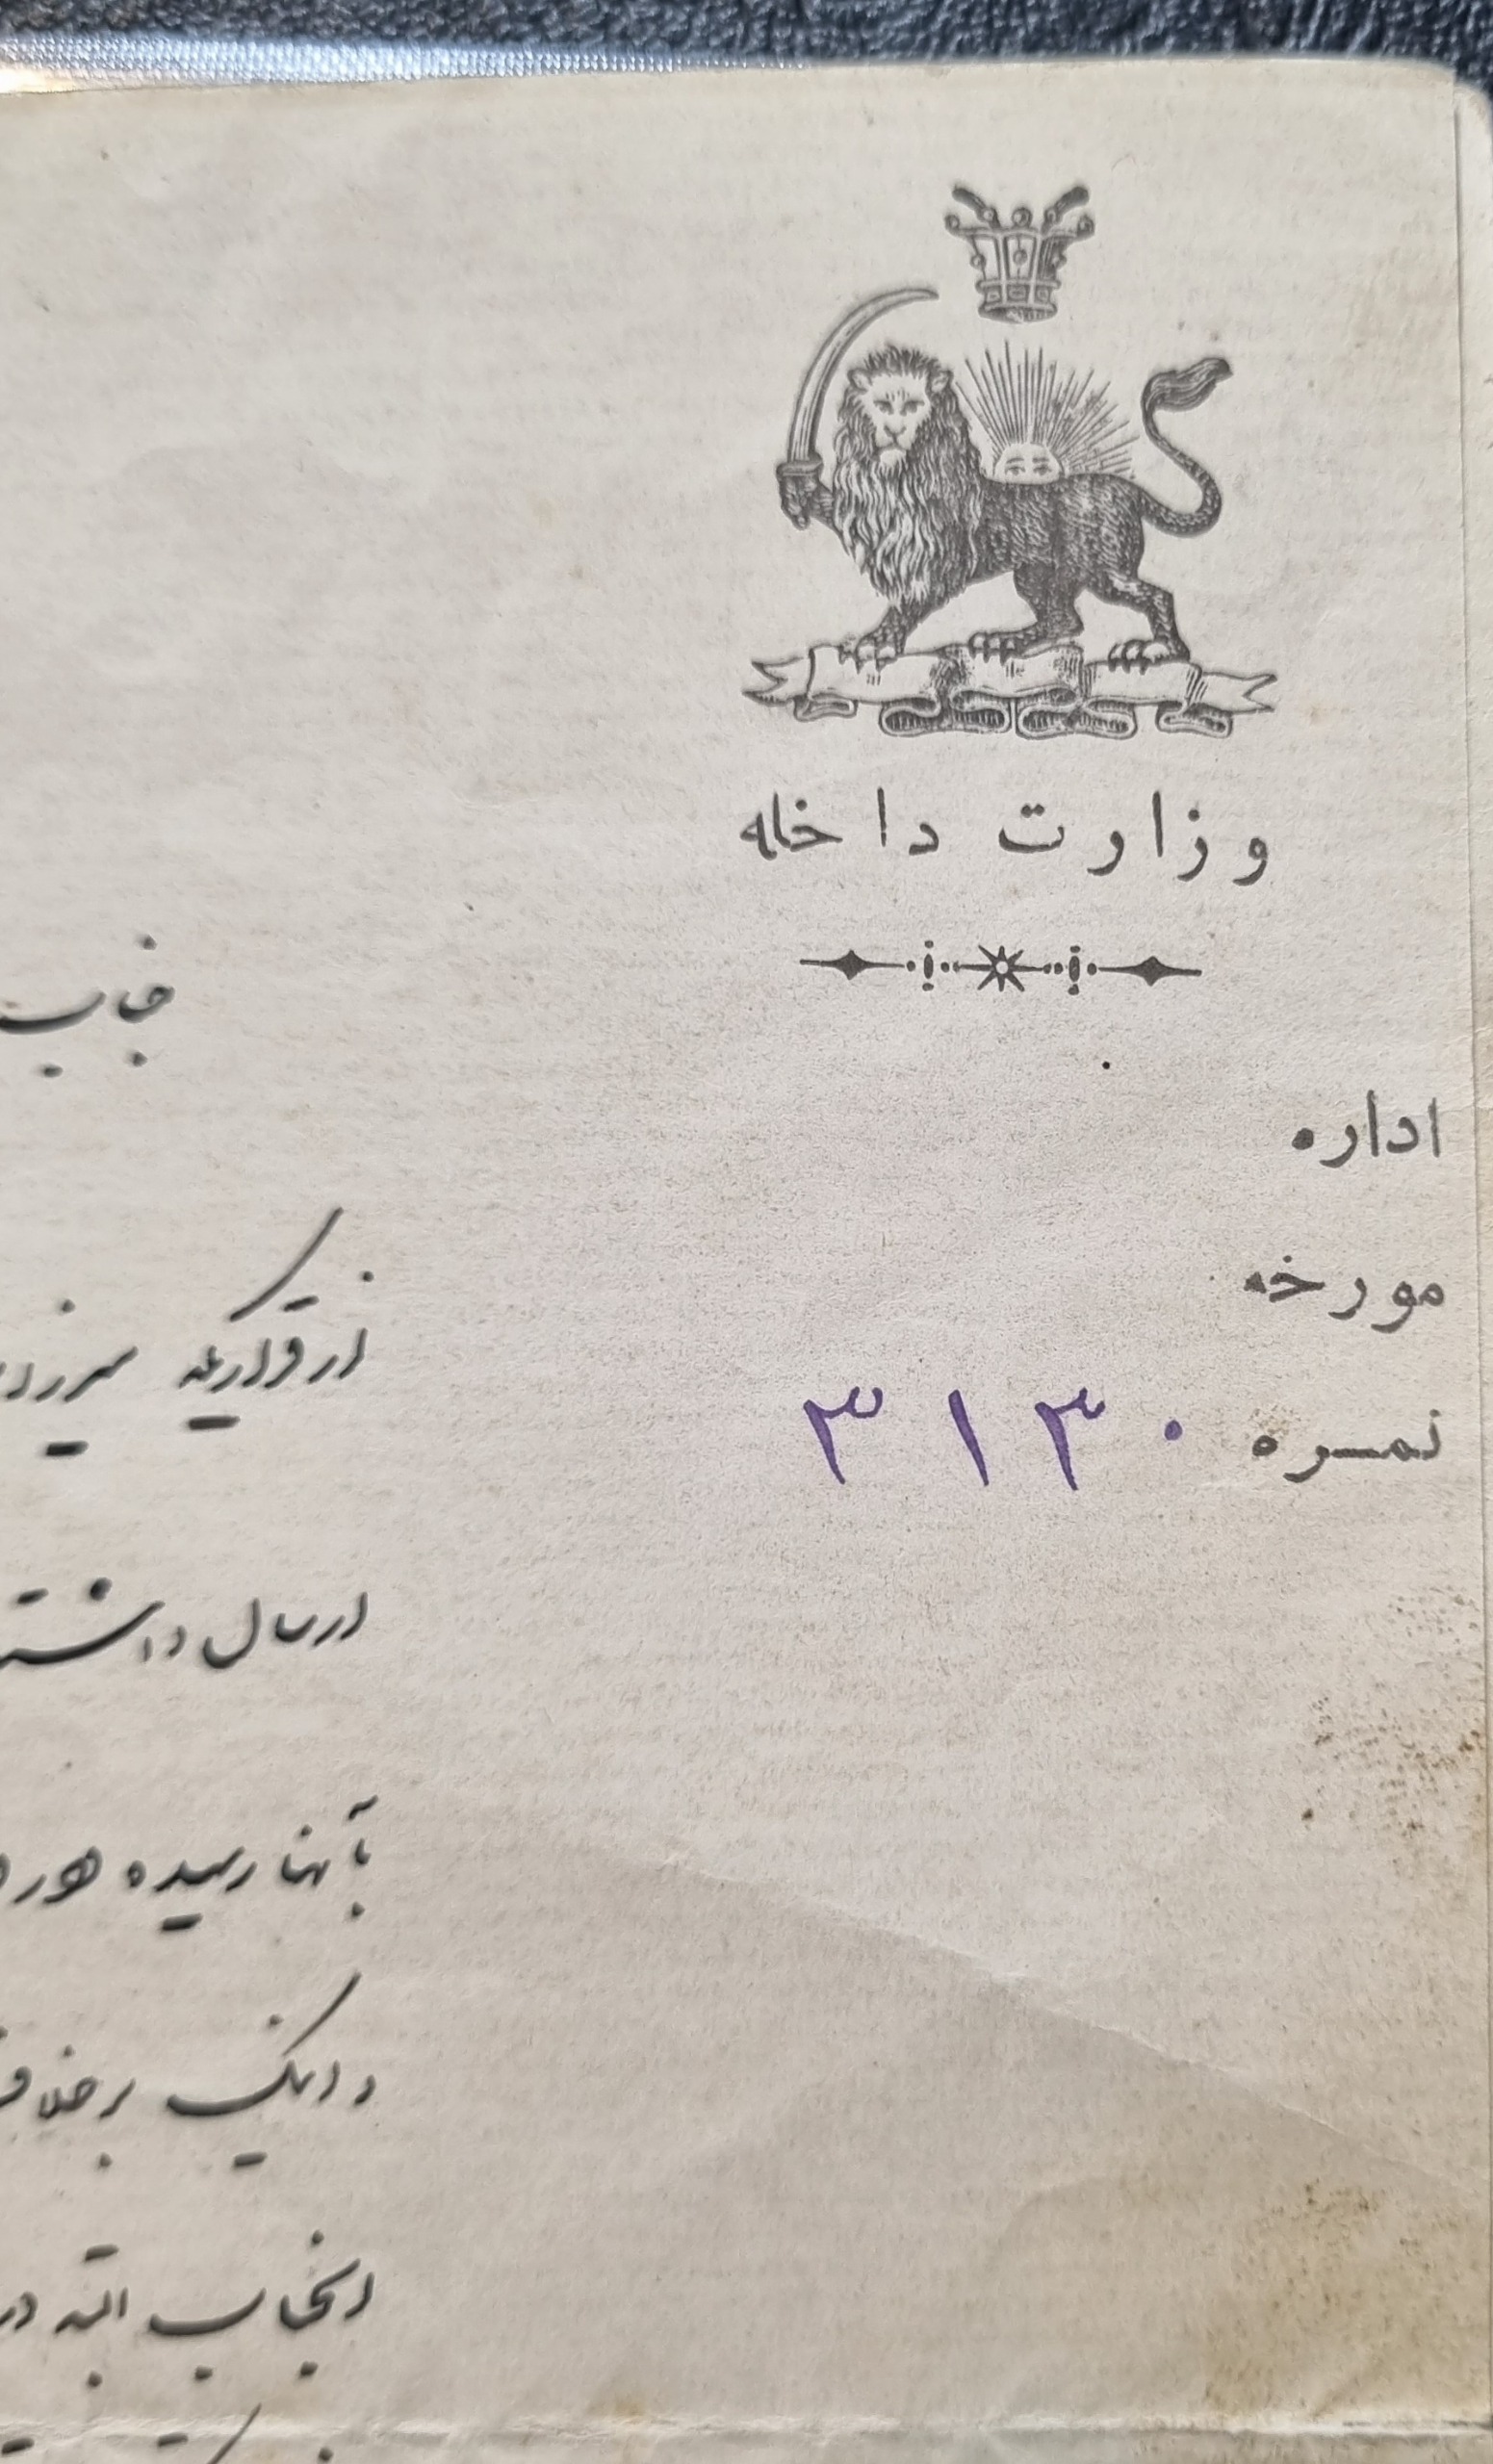 وزارت داخله
اداره
مورخه
نمره ۳۱۳۰
جناب
از قراریکه میرزا
ارسال داشت
بآنها رسیده
و اینک برخلاف
انجناب البته در